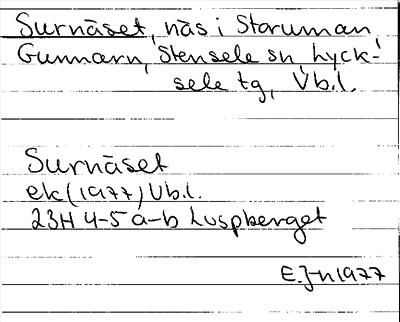 Surnäset, näs i Storuman,
Gunnarn, Stensele sn, Lyck-
sele tg, Vb.l.
Surnäset
ek (1977) Vb.l.
23H 4-5 a-b Luspberget
E.J-n 1977